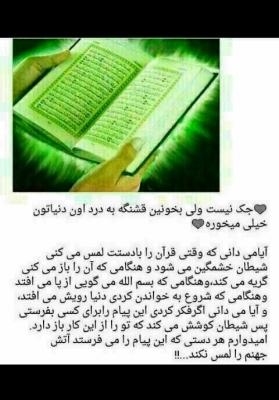 💜جک نیست ولی بخونین قشنگه به درد اون دنیاتون
خیلی میخوره💜
آیامی دانی که وقتی قرآن را بادستت لمس می کنی
شیطان خشمگین می شود و هنگامی که آن را باز می کنی
گریه می کند،وهنگامی که بسم الله می گویی از پا می افتد
وهنگامی که شروع به خواندن کردی دنیا رویش می افتد،
و آیامی دانی اگرفکر کردی این پیام رابرای کسی بفرستی
پس شیطان کوشش می کند که تو را از این کار باز دارد.
امیدوارم هر دستی که این پیام را می فرستد آتش
جهنم را لمس نکند...!!